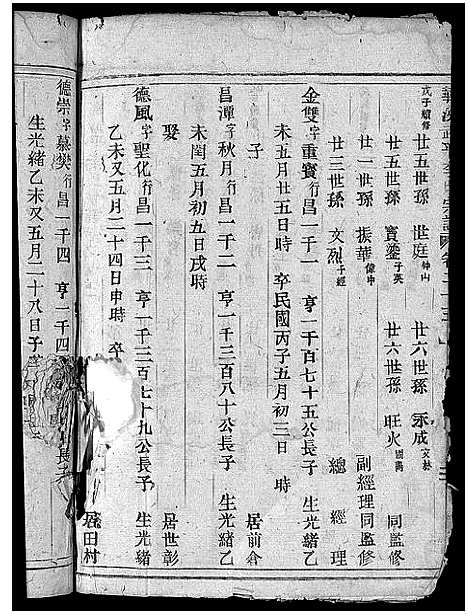 戊子續修
廿五世孫 世庭神山 廿六世孫 承成文林
廿五世孫 寶鎏子英 廿六世孫 旺火國禹 同監修
廿三世孫 振華偉中 副經理同監修
廿三世孫 文烈子經 總經理
金雙字重寶行昌一千一 亨一千一百七十五公長子 生光緒乙
未五月廿五日時 卒民國丙子五月初三日 時
子
昌潭字秋月行昌一千二 亨一千三百八十公長子 生光緒乙
未閏五月初五日戌時 居前倉
娶
德風字聖化行昌一千三 亨一千二百七十九公長子 生光緒
乙未又五月二十四日申時 卒
居世彰
居田村
德崇字慕樊行昌一千四 亨一千四
生光緒乙未又五月二十八日子